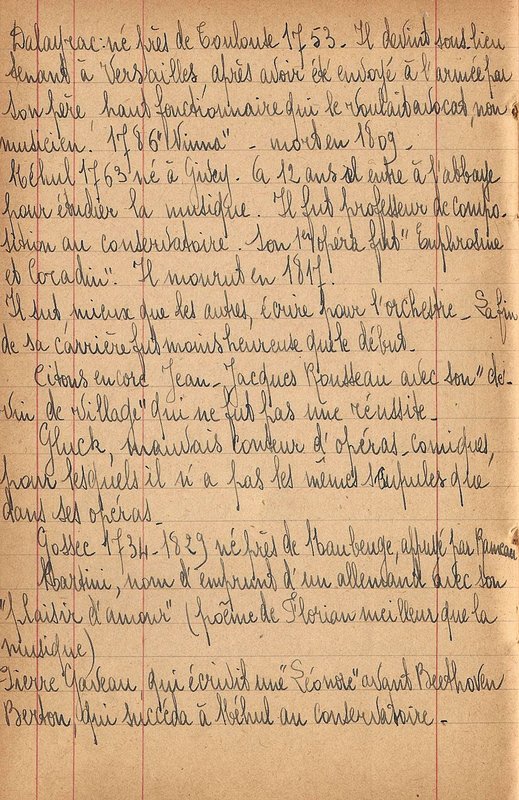 Dalayrac né près de Toulouse 1753. Il devint sous-lieu
tenant à Versailles après avoir été envoyé à l'armée par
son père, haut fonctionnaire qui le voulait avocat, non
musicien. 1786 "Ninna" - mort en 1809.
Méhul 1763 né à Givey. A 12 ans il entre à l'abbaye
pour étudier la musique. Il fut professeur de compo-
sition au conservatoire. Son 1er opéra fut "Euphrasine
et Coradin". Il mourut en 1817.
Il sut, mieux que les autres, écrire pour l'orchestre - La fin
de sa carrière fut moins heureuse que le début.
Citons encore Jean-Jacques Rousseau avec son "de-
vin de village" qui ne fut pas une réussite.
Gluck, mauvais conteur d'opéras-comiques,
pour lesquels il n'a pas les mêmes scrupules que
dans ses opéras.
Gossec 1734-1829 né près de Maubeuge, appuyé par Rameau
Martini, nom d'emprunt d'un allemand avec son
"plaisir d'amour" (poème de Florian meilleur que la
musique)
Pierre Gaveau qui écrivit une "Léonore" avant Beethoven
Berton, qui succéda à Méhul au conservatoire.